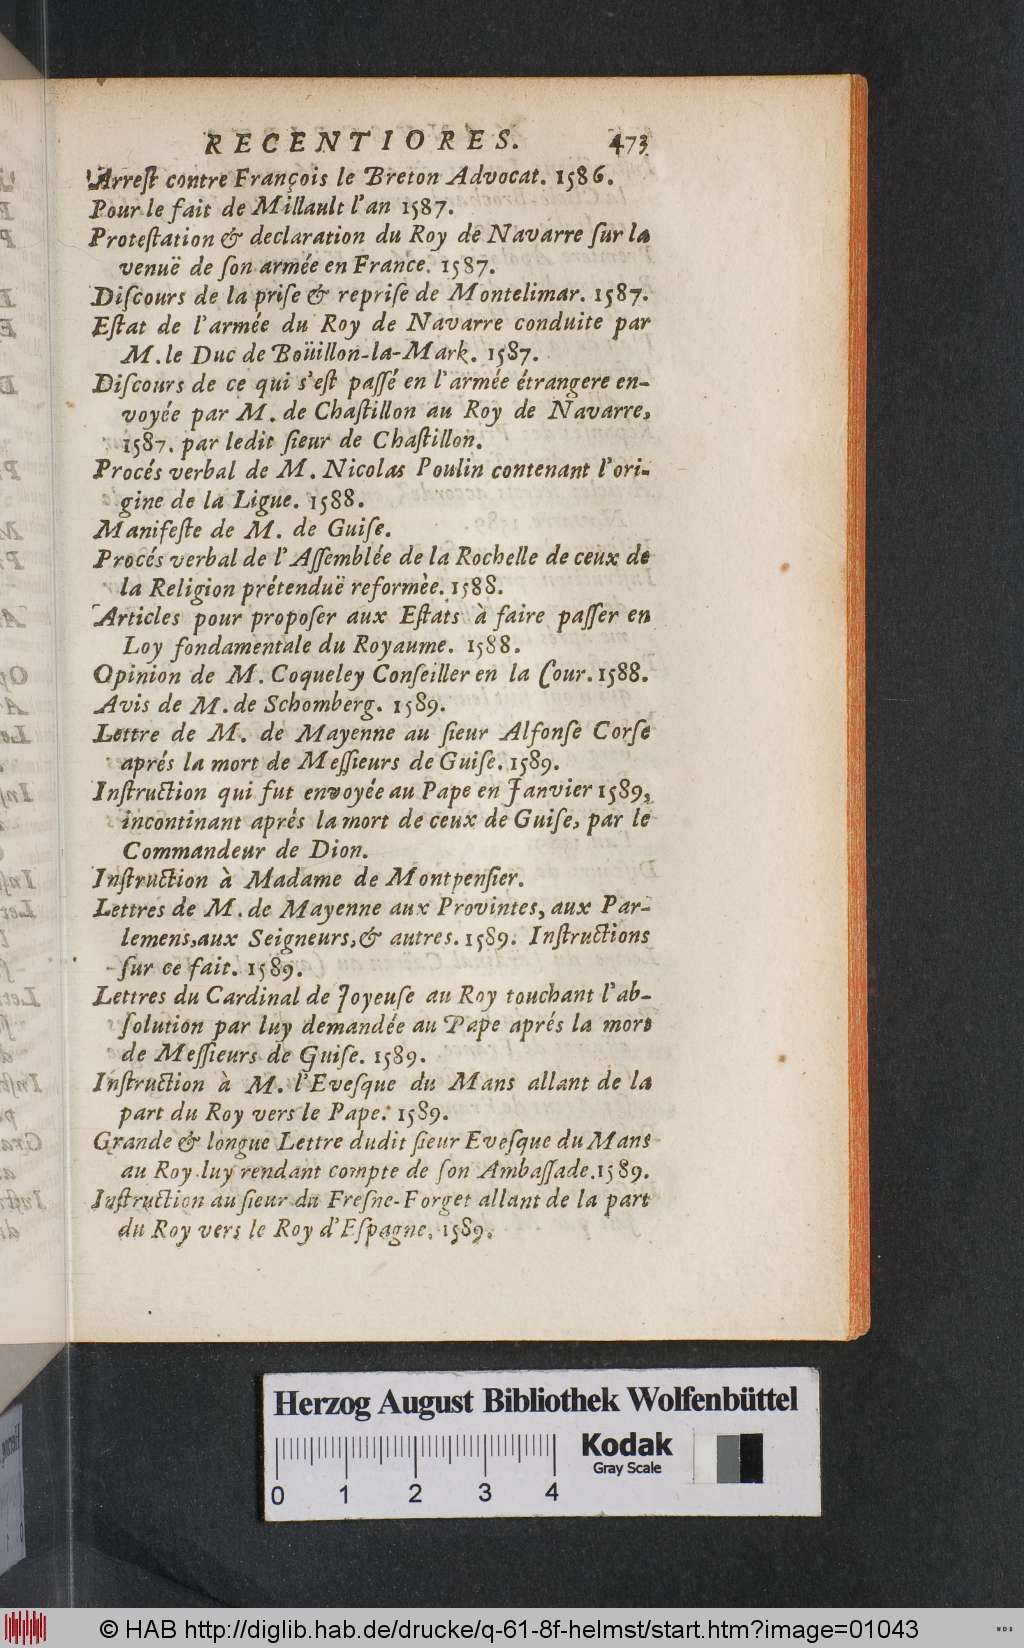 RECENTIORES. 473
Arreſt contre François le Breton Advocat. 1586.
Pour le fait de Millault l'an 1587.
Proteſtation & declaration du Roy de Navarre ſur la
venuë de ſon armée en France. 1587.
Diſcours de la priſe & repriſe de Montelimar. 1587.
Eſtat de l'armée du Roy de Navarre conduite par
M. le Duc de Boüillon-la-Mark. 1587.
Diſcours de ce qui s'eſt paſſé en l'armée étrangere en-
voyée par M. de Chaſtillon au Roy de Navarre,
1587. par ledit ſieur de Chaſtillon.
Procés verbal de M. Nicolas Poulin contenant l'ori-
gine de la Ligue. 1588.
Manifeſte de M. de Guiſe.
Procés verbal de l'Aſſemblée de la Rochelle de ceux de
la Religion prétenduë reformèe. 1588.
Articles pour propoſer aux Eſtats à faire paſſer en
Loy fondamentale du Royaume. 1588.
Opinion de M. Coqueley Conſeiller en la Cour. 1588.
Avis de M. de Schomberg. 1589.
Lettre de M. de Mayenne au ſieur Alfonſe Corſe
aprés la mort de Meſſieurs de Guiſe. 1589.
Inſtruction qui fut envoyée au Pape en Janvier 1589,
incontinant aprés la mort de ceux de Guiſe, par le
Commandeur de Dion.
Inſtruction à Madame de Montpenſier.
Lettres de M. de Mayenne aux Provintes, aux Par-
lemens, aux Seigneurs, & autres. 1589. Inſtructions
ſur ce fait. 1589.
Lettres du Cardinal de Joyeuſe au Roy touchant l'ab-
ſolution par luy demandée au Pape aprés la mort
de Meſſieurs de Guiſe. 1589.
Inſtruction à M. l'Eveſque du Mans allant de la
part du Roy vers le Pape. 1589.
Grande & longue Lettre dudit ſieur Eveſque du Mans
au Roy luy rendant compte de ſon Ambaſſade. 1589.
Inſtruction au ſieur du Freſne-Forget allant de la part
du Roy vers le Roy d'Eſpagne. 1589.
Herzog August Bibliothek Wolfenbüttel
Kodak
Gray Scale
0 1 2 3 4
© HAB http://diglib.hab.de/drucke/q-61-8f-helmst/start.htm?image=01043